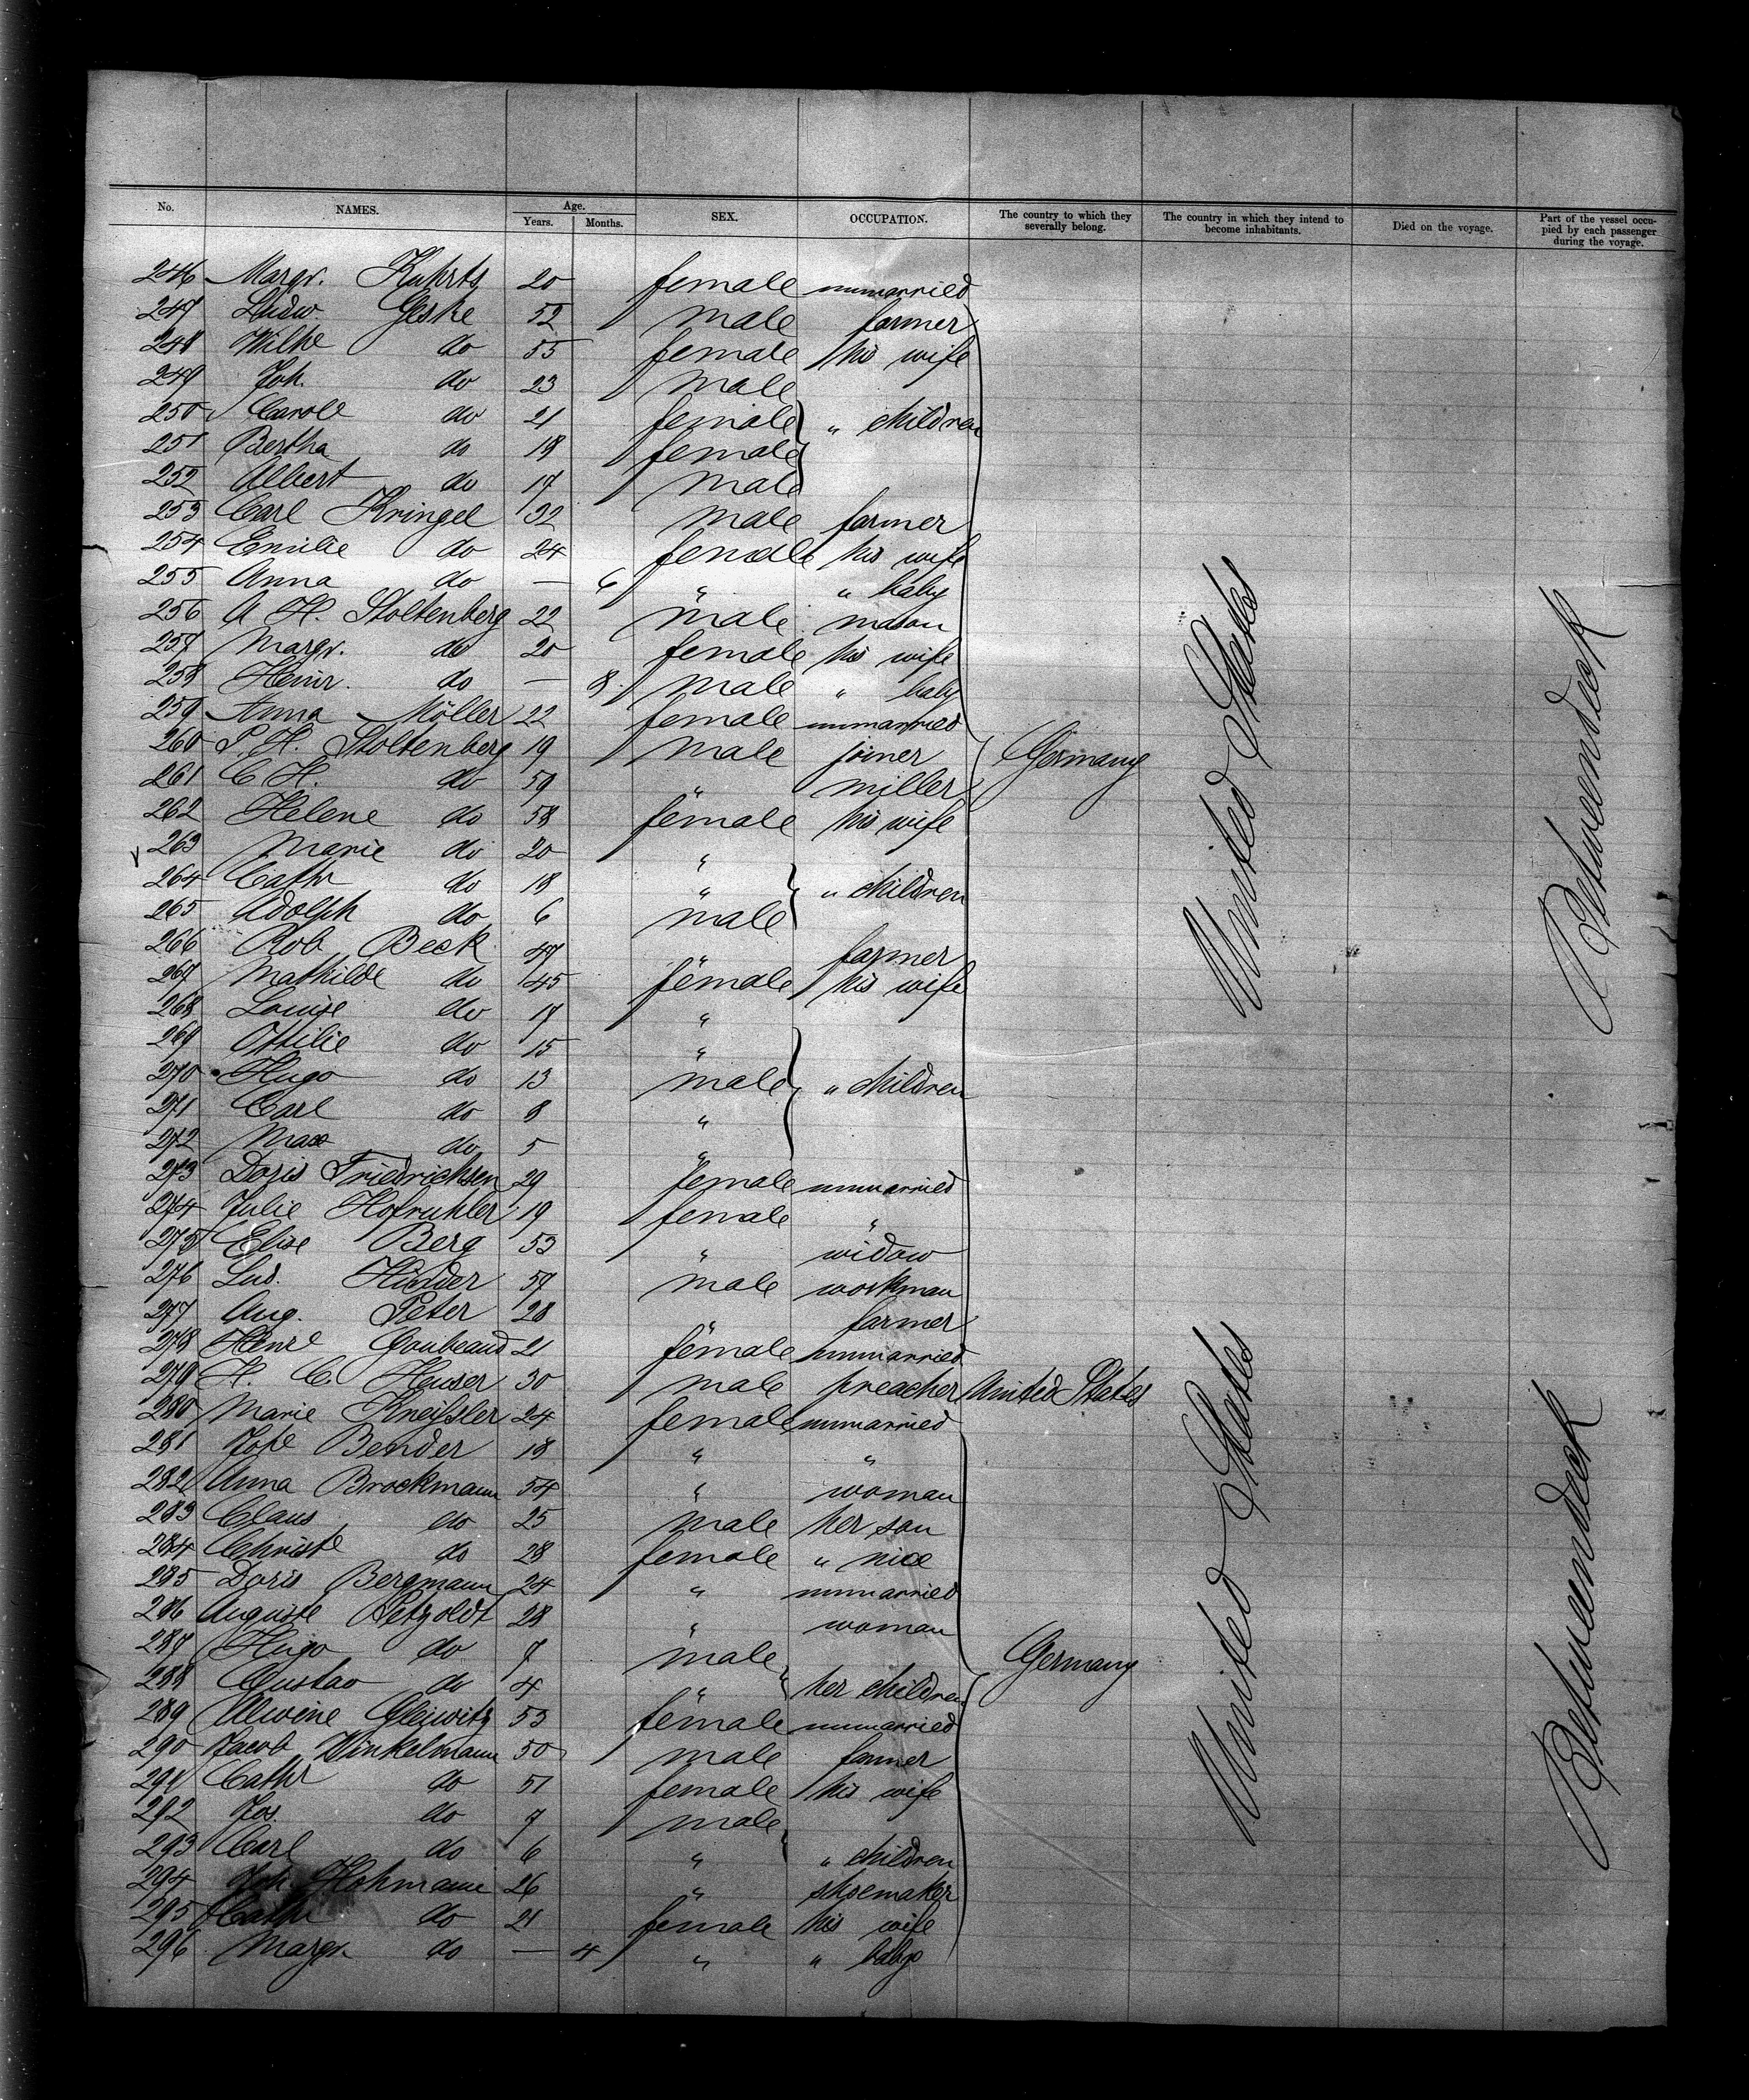 No. NAMES. Age. Years. Months. SEX. OCCUPATION. The country to which they severally belong. The country in which they intend to become inhabitants. Died on the voyage. Part of the vessel occupied by each passenger during the voyage.
246 Margr. Kuhrts 20 female unmarried
247 Ludw. Geske 52 male farmer
248 Wilhe do 55 female his wife
249 Joh. do 23 male
250 Carole do 21 female " children
251 Bertha do 18 female
252 Albert do 17 male
253 Carl Kringel 32 male farmer
254 Emilie do 24 female his wife
255 Anna do — 6 " " baby
256 A H. Stoltenberg 22 male mason
257 Margr. do 20 female his wife
258 Heinr. do — 8 male " baby
259 Anna Möller 22 female unmarried
260 P. H. Stoltenberg 19 male joiner Germany
261 C H. do 59 " miller
262 Helene do 58 female his wife
263 Marie do 20 "
264 Cathr do 18 " " children
265 Adolph do 6 male
266 Rob Beck 47 " farmer
267 Mathilde do 45 female his wife
268 Louise do 17 "
269 Ottilie do 15 "
270 Hugo do 13 male " children
271 Carl do 8 "
272 Max do 5 "
273 Doris Friedrichsen 29 female unmarried
274 Julie Hofruhler 19 female "
275 Elise Berg 53 " widow
276 Lud. Hinder 57 male workman
277 Aug. Peter 28 " farmer
278 Henre Goubeaud 21 female unmarried
279 H. C. Hauser 30 male preacher United States
280 Marie Kneissler 24 female unmarried
281 Jose Bender 18 " "
282 Anna Brockmann 54 " woman
283 Claus do 25 male her son
284 Christe do 28 female " nice
285 Doris Bergmann 24 " unmarried
286 Auguste Petzoldt 28 " woman
287 Hugo do 7 male
288 Gustav do 4 " her children Germany
289 Alwine Gleiwitz 53 female unmarried
290 Jacob Winkelmann 50 male farmer
291 Cathr do 51 female his wife
292 Jos do 7 male
293 Carl do 6 " " children
294 Joh. Hohmann 26 " shoemaker
295 Cathr do 21 female his wife
296 Margr. do — 4 " " baby
United States
Betweendeck
United States
Betweendeck